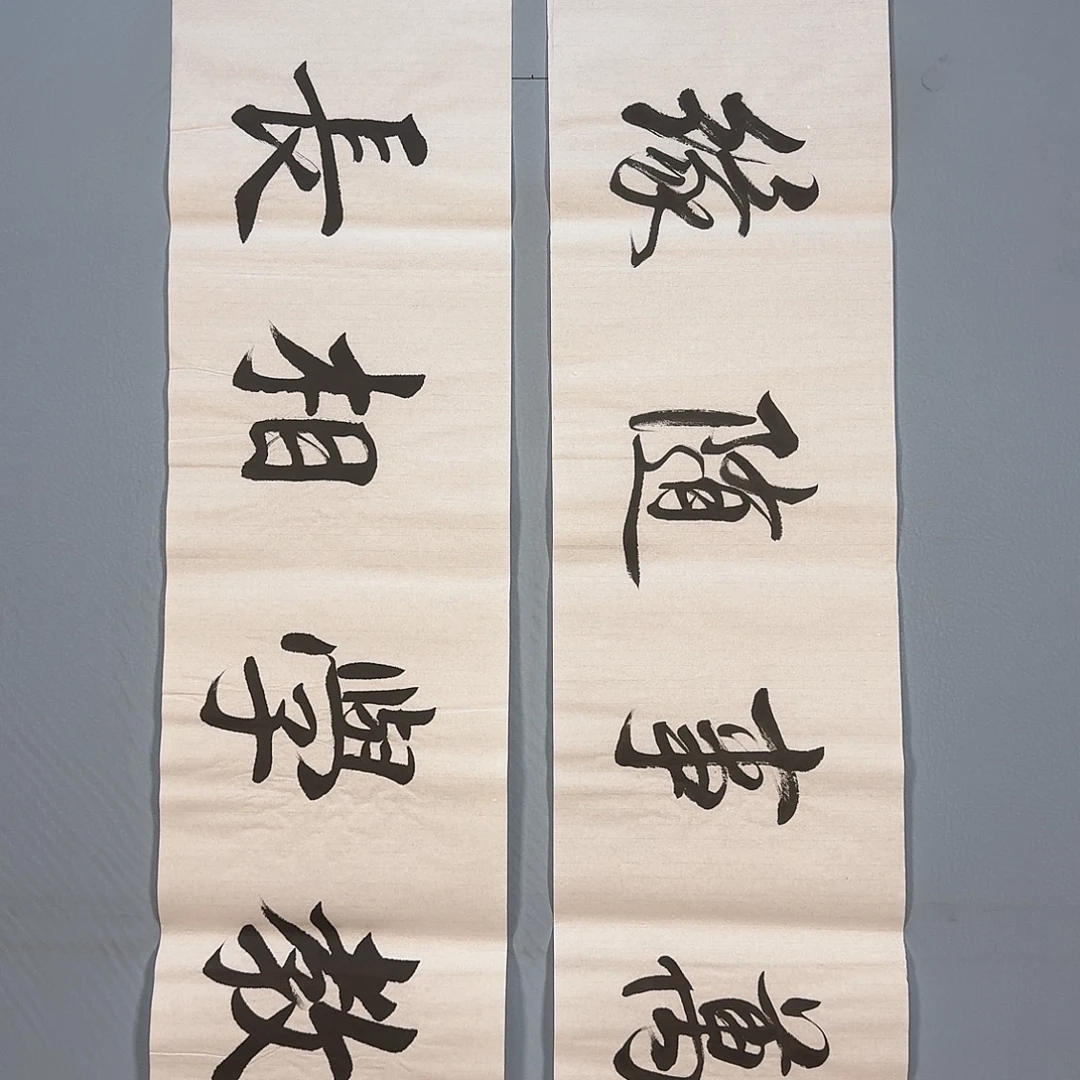 萬事随緣
教學相長